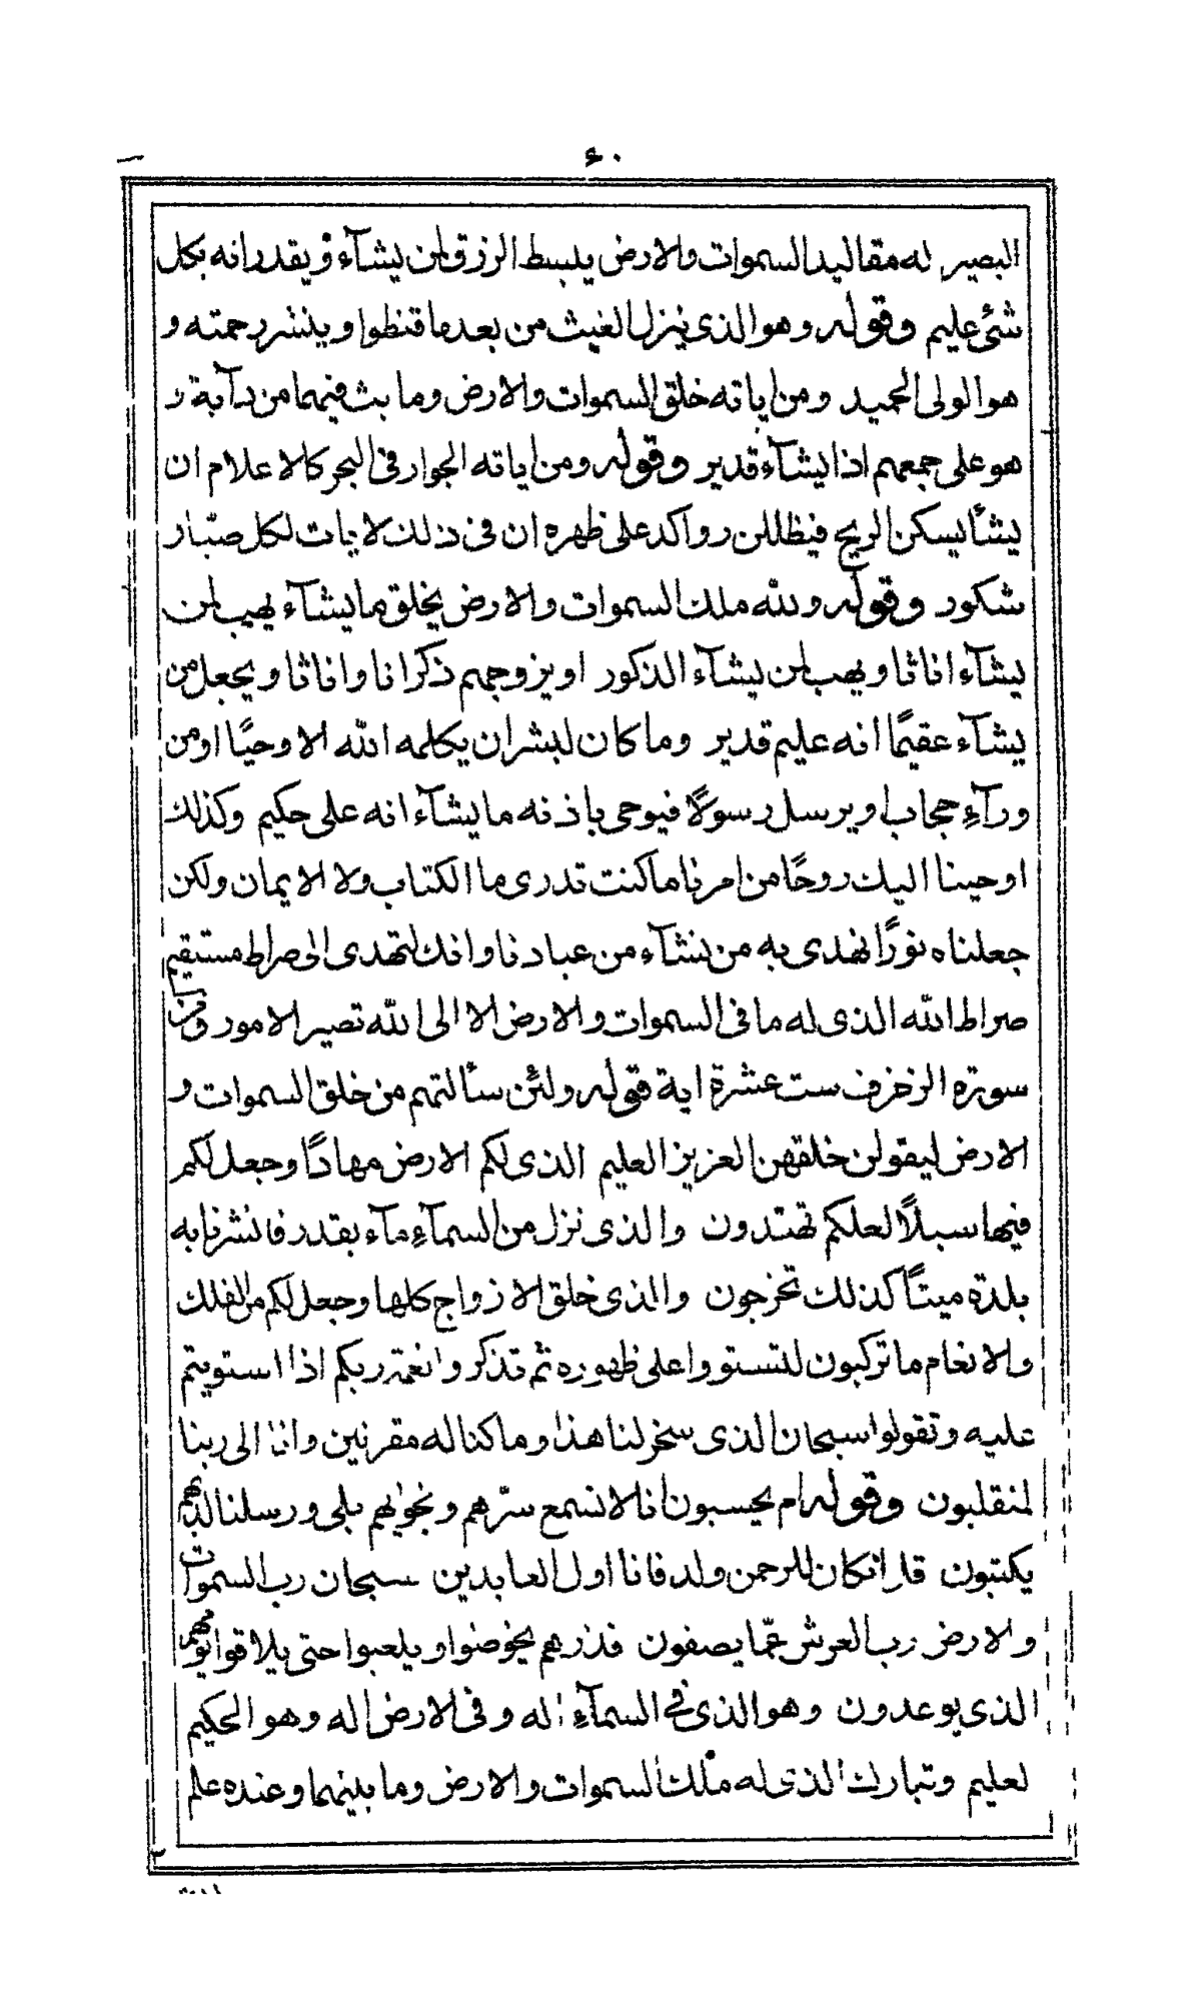 ٤٠
البصير له مقاليد السموات والارض يبسط الرزق لمن يشآء ويقدر انه بكل
شئ عليم وقوله وهو الذى ينزل الغيث من بعد ما قنطوا وينشر رحمته و
هو الولى الحميد ومن اياته خلق السموات والارض وما بث فيهما من دآبة و
هو على جمعهم اذا يشآء قدير وقوله ومن اياته الجوار فى البحر كالاعلام ان
يشأ يسكن الريح فيظللن رواكد على ظهره ان فى ذلك لايات لكل صبّار
شكور وقوله ولله ملك السموات والارض يخلق ما يشآء يهب لمن
يشآء اناثا ويهب لمن يشآء الذكور او يزوجهم ذكرانا واناثا ويجعل من
يشآء عقيمًا انه عليم قدير وما كان لبشر ان يكلمه الله الا وحيًا او من
ورآءِ حجاب او يرسل رسولًا فيوحى باذنه ما يشآء انه على حكيم وكذلك
اوحينا اليك روحًا من امرنا ما كنت تدرى ما الكتاب ولا الايمان ولكن
جعلناه نورًا نهدى به من نشآء من عبادنا وانك لتهدى الى صراط مستقيم
صراط الله الذى له ما فى السموات والارض الا الى الله تصير الامور ومن
سورة الزخرف ست عشرة اية قوله ولئن سألتهم من خلق السموات و
الارض ليقولن خلقهن العزيز العليم الذى لكم الارض مهادًا وجعل لكم
فيها سبلًا لعلكم تهتدون والذى نزل من السمآءِ مآء بقدر فانشرنا به
بلدة ميتًا كذلك تخرجون والذى خلق الازواج كلها وجعل لكم من الفلك
والانعام ما تركبون لتستووا على ظهوره ثم تذكروا نعمة ربكم اذا استويتم
عليه وتقولوا سبحان الذى سخر لنا هذا وما كنا له مقرنين وانا الى ربنا
لمنقلبون وقوله ام يحسبون انا لا نسمع سرّهم ونجويهم بلى ورسلنا لديهم
يكتبون قل ان كان للرحمن ولد فانا اول العابدين سبحان رب السموات
والارض رب العرش عمّا يصفون فذرهم يخوضوا ويلعبوا حتى يلاقوا يومهم
الذى يوعدون وهو الذى فى السمآءِ اله وفى الارض اله وهو الحكيم
لعليم وتبارك الذى له ملك السموات والارض وما بينهما وعنده علم